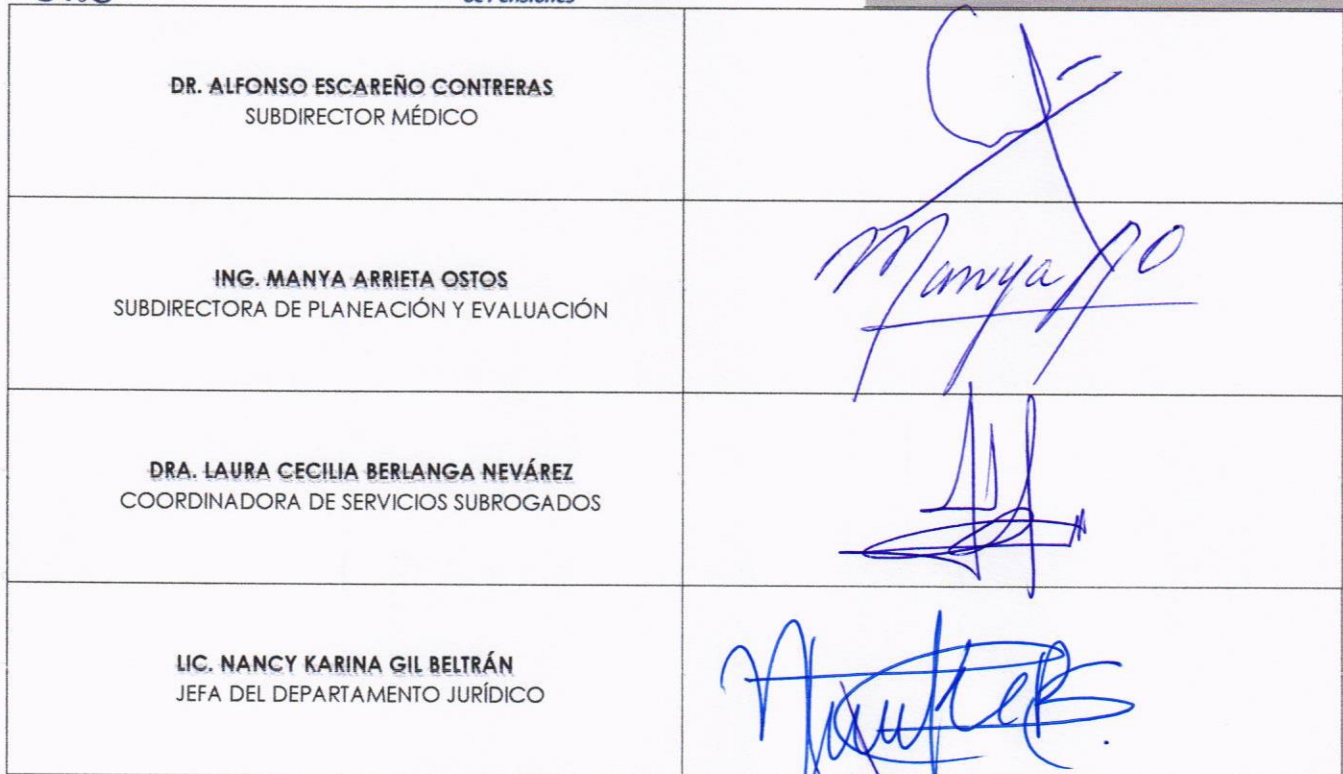 de Pensiones
DR. ALFONSO ESCAREÑO CONTRERAS
SUBDIRECTOR MÉDICO
ING. MANYA ARRIETA OSTOS
SUBDIRECTORA DE PLANEACIÓN Y EVALUACIÓN
Manya AO
DRA. LAURA CECILIA BERLANGA NEVÁREZ
COORDINADORA DE SERVICIOS SUBROGADOS
LIC. NANCY KARINA GIL BELTRÁN
JEFA DEL DEPARTAMENTO JURÍDICO